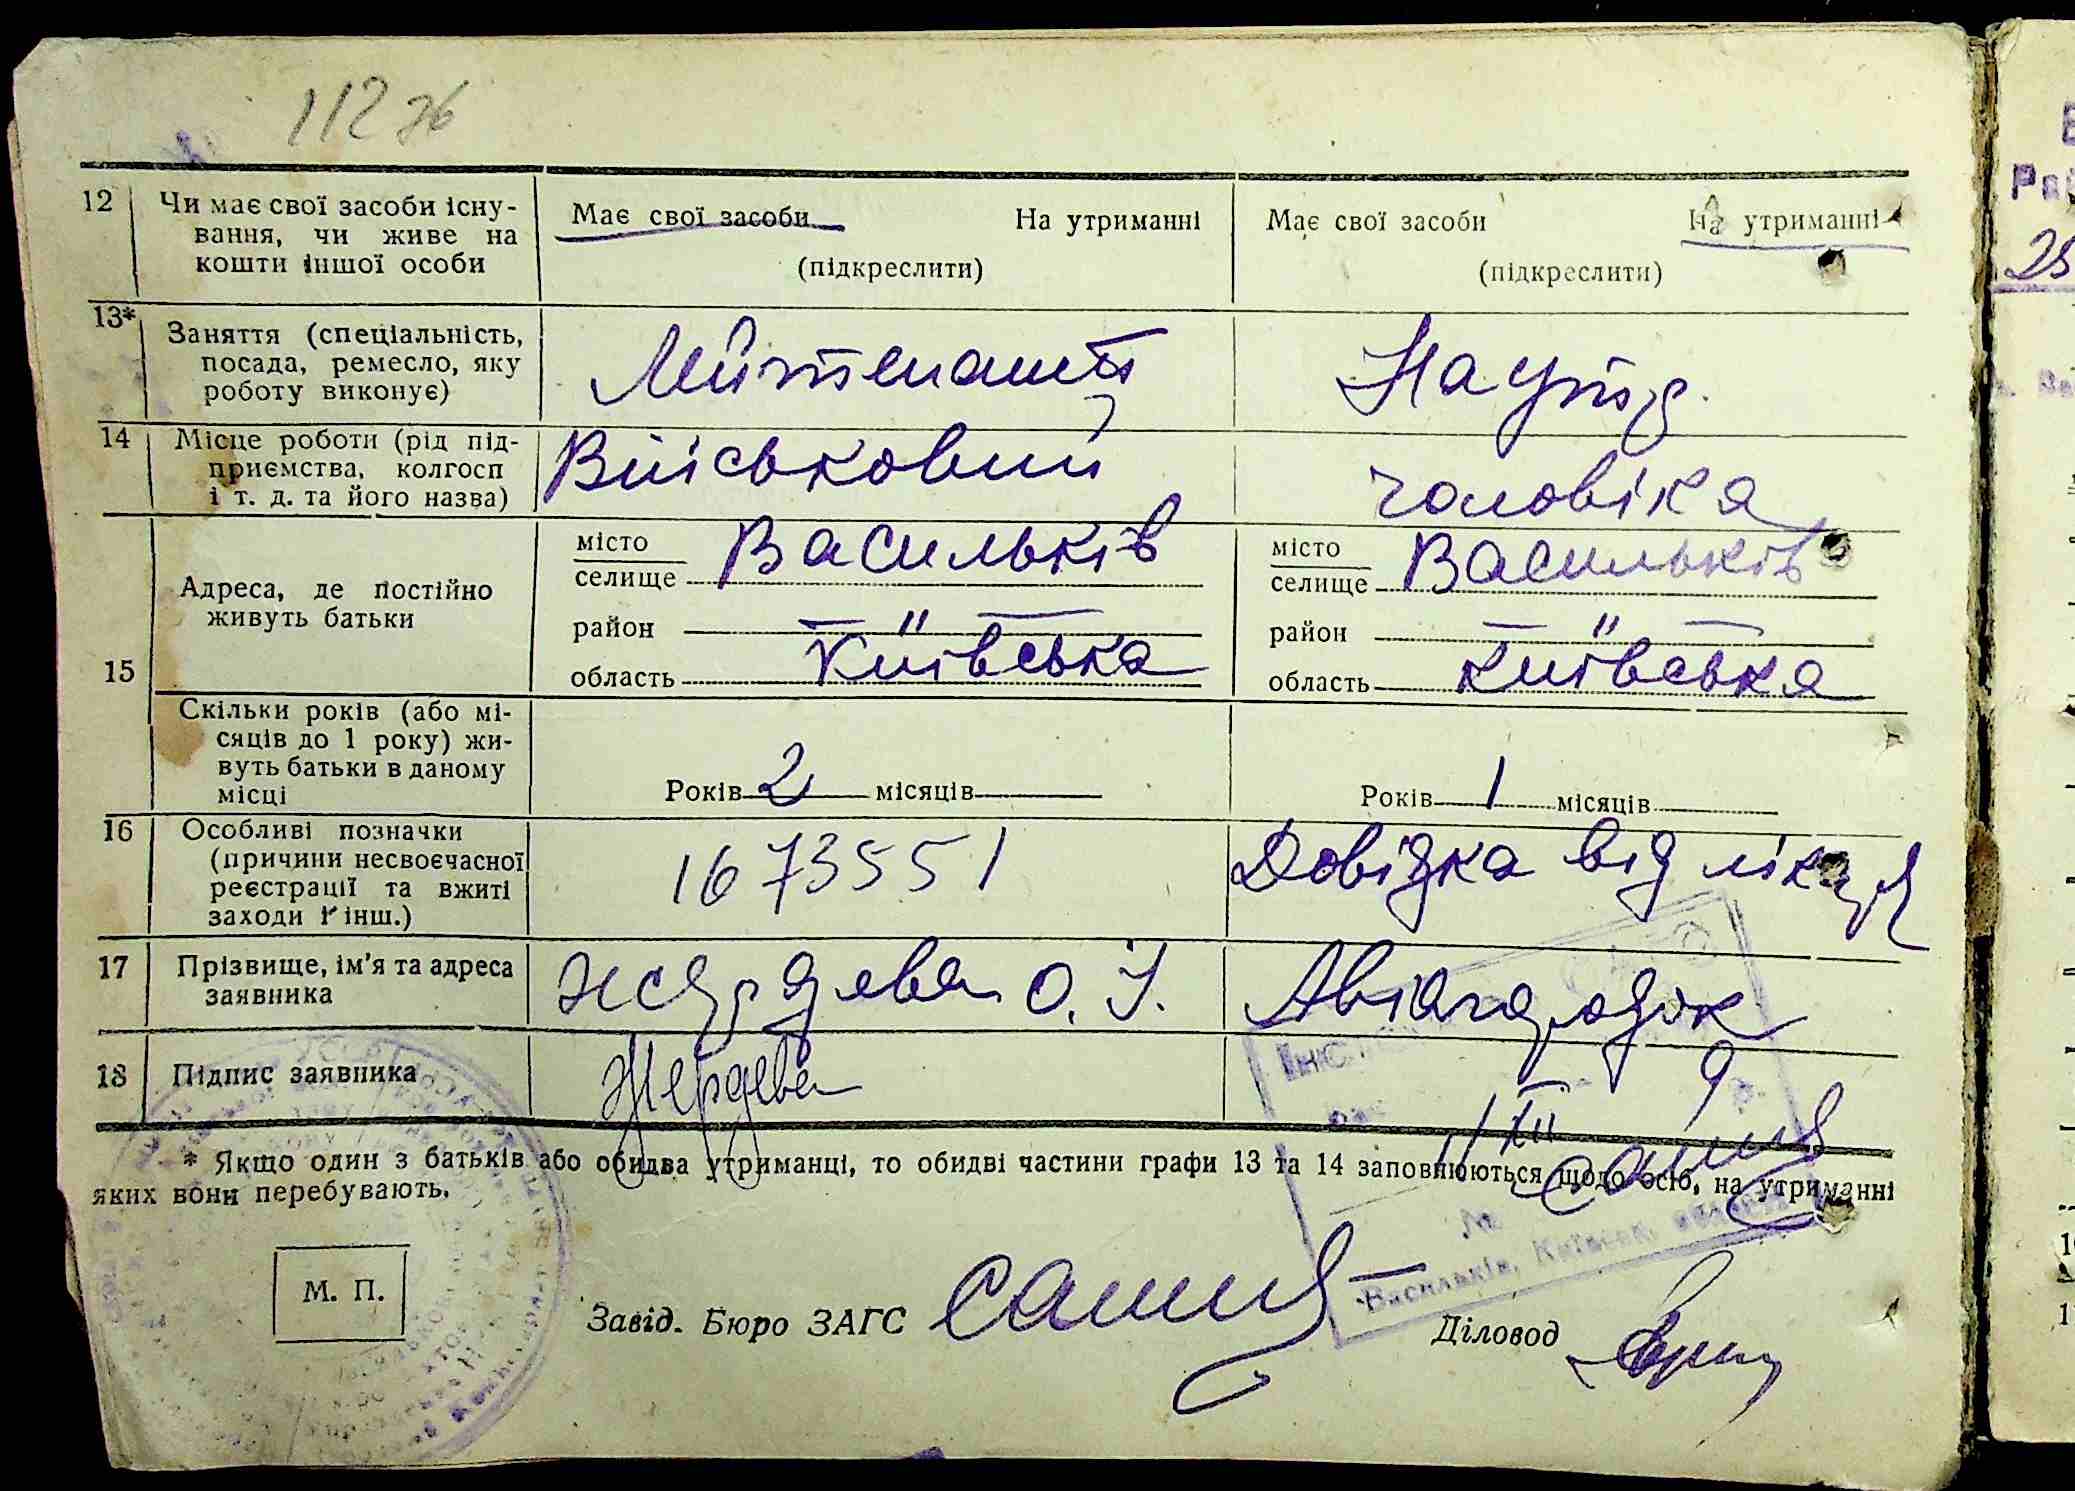 112 зв
12 Чи має свої засоби існу-
вання, чи живе на
кошти іншої особи
Має свої засоби На утриманні
(підкреслити)
Має свої засоби На утриманні
(підкреслити)
13* Заняття (спеціальність,
посада, ремесло, яку
роботу виконує)
Лейтенант
На утр.
14 Місце роботи (рід під-
приємства, колгосп
і т. д. та його назва)
Військовий
чоловіка
15 Адреса, де постійно
живуть батьки
місто
селище Васильків
район — " —
область Київська
місто
селище Васильків
район — " —
область Київська
Скільки років (або мі-
сяців до 1 року) жи-
вуть батьки в даному
місці
Років 2 місяців
Років 1 місяців
16 Особливі позначки
(причини несвоєчасної
реєстрації та вжиті
заходи і інш.)
1673551
Довідка від лікаря
17 Прізвище, ім'я та адреса
заявника
Жердева О. І.
Авіагородок
18 Підпис заявника
Жердева
9
11 XII
* Якщо один з батьків або обидва утриманці, то обидві частини графи 13 та 14 заповнюються щодо осіб, на утриманні
яких вони перебувають.
Васильків, Київськ.
М. П.
Завід. Бюро ЗАГС
Діловод